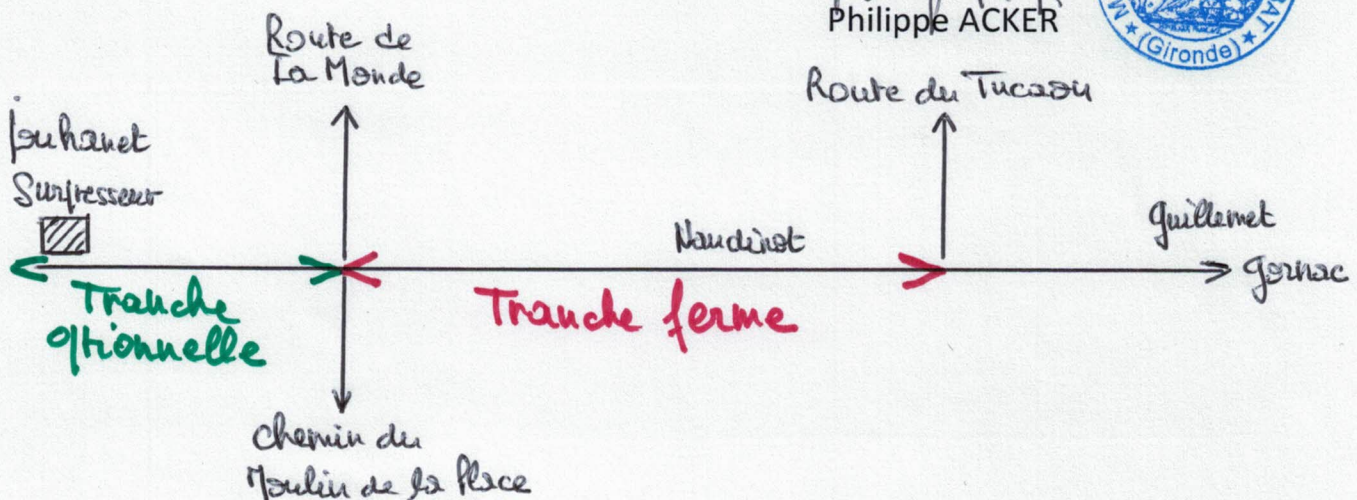 Philippe ACKER
AT ★ (Gironde) ★ M
Route de
La Monde
Route du Tucaou
Jouhanet
Surpresseur
Naudinot
Guillemet
Gornac
Tranche
optionnelle
Tranche ferme
Chemin du
Moulin de la Place